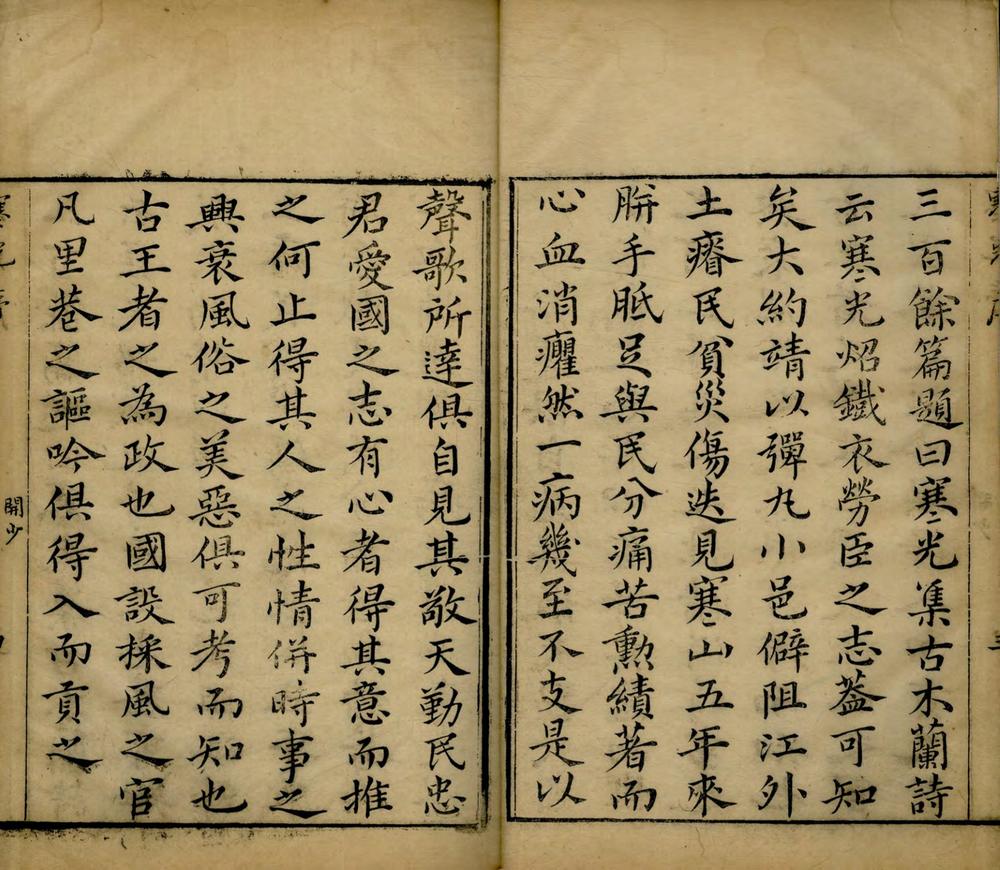 三百餘篇題曰寒光集古木蘭詩
云寒光炤鐵衣勞臣之志葢可知
矣大約靖以彈丸小邑僻阻江外
土瘠民貧災傷迭見寒山五年來
胼手胝足與民分痛苦勳績著而
心血消癯然一病幾至不支是以
聲歌所達俱自見其敬天勤民忠
君愛國之志有心者得其意而推
之何止得其人之性情併時事之
興衰風俗之美惡俱可考而知也
古王者之為政也國設採風之官
凡里巷之謳吟俱得入而貢之
開少